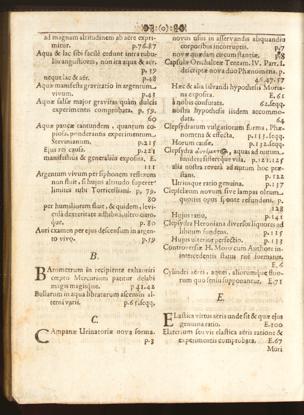 (o)
ad magnum altitudinem ab aëre exprimitur. p.76.87
Aqua & lac sibi facilè cedunt intra tubulos angustiores, non ita aqua & aër. p.39
neque lac & aër. p.48
Aquæ manifesta gravitatio in argentum vivum. p.48
Aquæ salsæ major gravitas quàm dulcis experimentis comprobata. p. 59. 60
Aquæ paucæ tantundem, quantum copiosa, ponderantis experimentum Stevinianum. p.215
Ejus rei causa. p.221
manifestiùs & generaliùs exposita, E. 111
Argentum vivum per siphonem restrorsum non fluit, si hujus altitudo superet limites tubi Torricelliani. p. 79. 80
per humiliorem fluit, & quidem, levi cùm dexteritate adhibita, ultro citroque. 80
Auri examen per ejus descensum in argento vivo. p.59
B.
Barometrum in recipiente exhauriri cœpto Mercurium paucat delabi magis magisque. p.41.42
Bullarum in aqua libratarum ascensus alterni varii. p.61. seqq.
C.
Campanæ Urinatoriæ nova forma. p.3
novus usus in asservandis aliquandiu corporibus incorruptis. p.7
novæ quædam circumstantiæ. p.8
Capsula Orichalcea Tentam. IV. Part. I. descripta nova duo Phænomena. p. 46.47.57
Hæc & alia secundi hypothesis Moriana exposita. E. 61
à nobis confutata. 62. seqq.
nostra hypothesis iisdem accommodata. 64
Clepsydrarum vulgarium forma, Phænomena & effecta. p.115. seqq.
Horum causæ. p.123. seqq.
Clepsydra, aquas ad nutum fundens sistensque vitia. p.121.125
alia nostra reverà ad nutum hoc præstans. p.122
Utriusque ratio genuina. p.127
Clepsydram novum sive lampas oleum, quoties opus sponte refundens. p. 128
Hujus ratio. p.141
Clepsydra Heroniana diversos liquores ad libitum fundens. p.115
Hujus ulterior perfectio. p.133
Controversiæ H. Mori cum Authore intercedentis status ritè formatus. E.6
Cylindri aëris, aquei, aliorumque fluorum quo sensu supponantur. E.71
E.
Elastica virtus aëris unde sit & quæ ejus genuina ratio. E.100
Elaterium seu vis elastica aëris ratione & experimentis comprobata. E.67
Mori